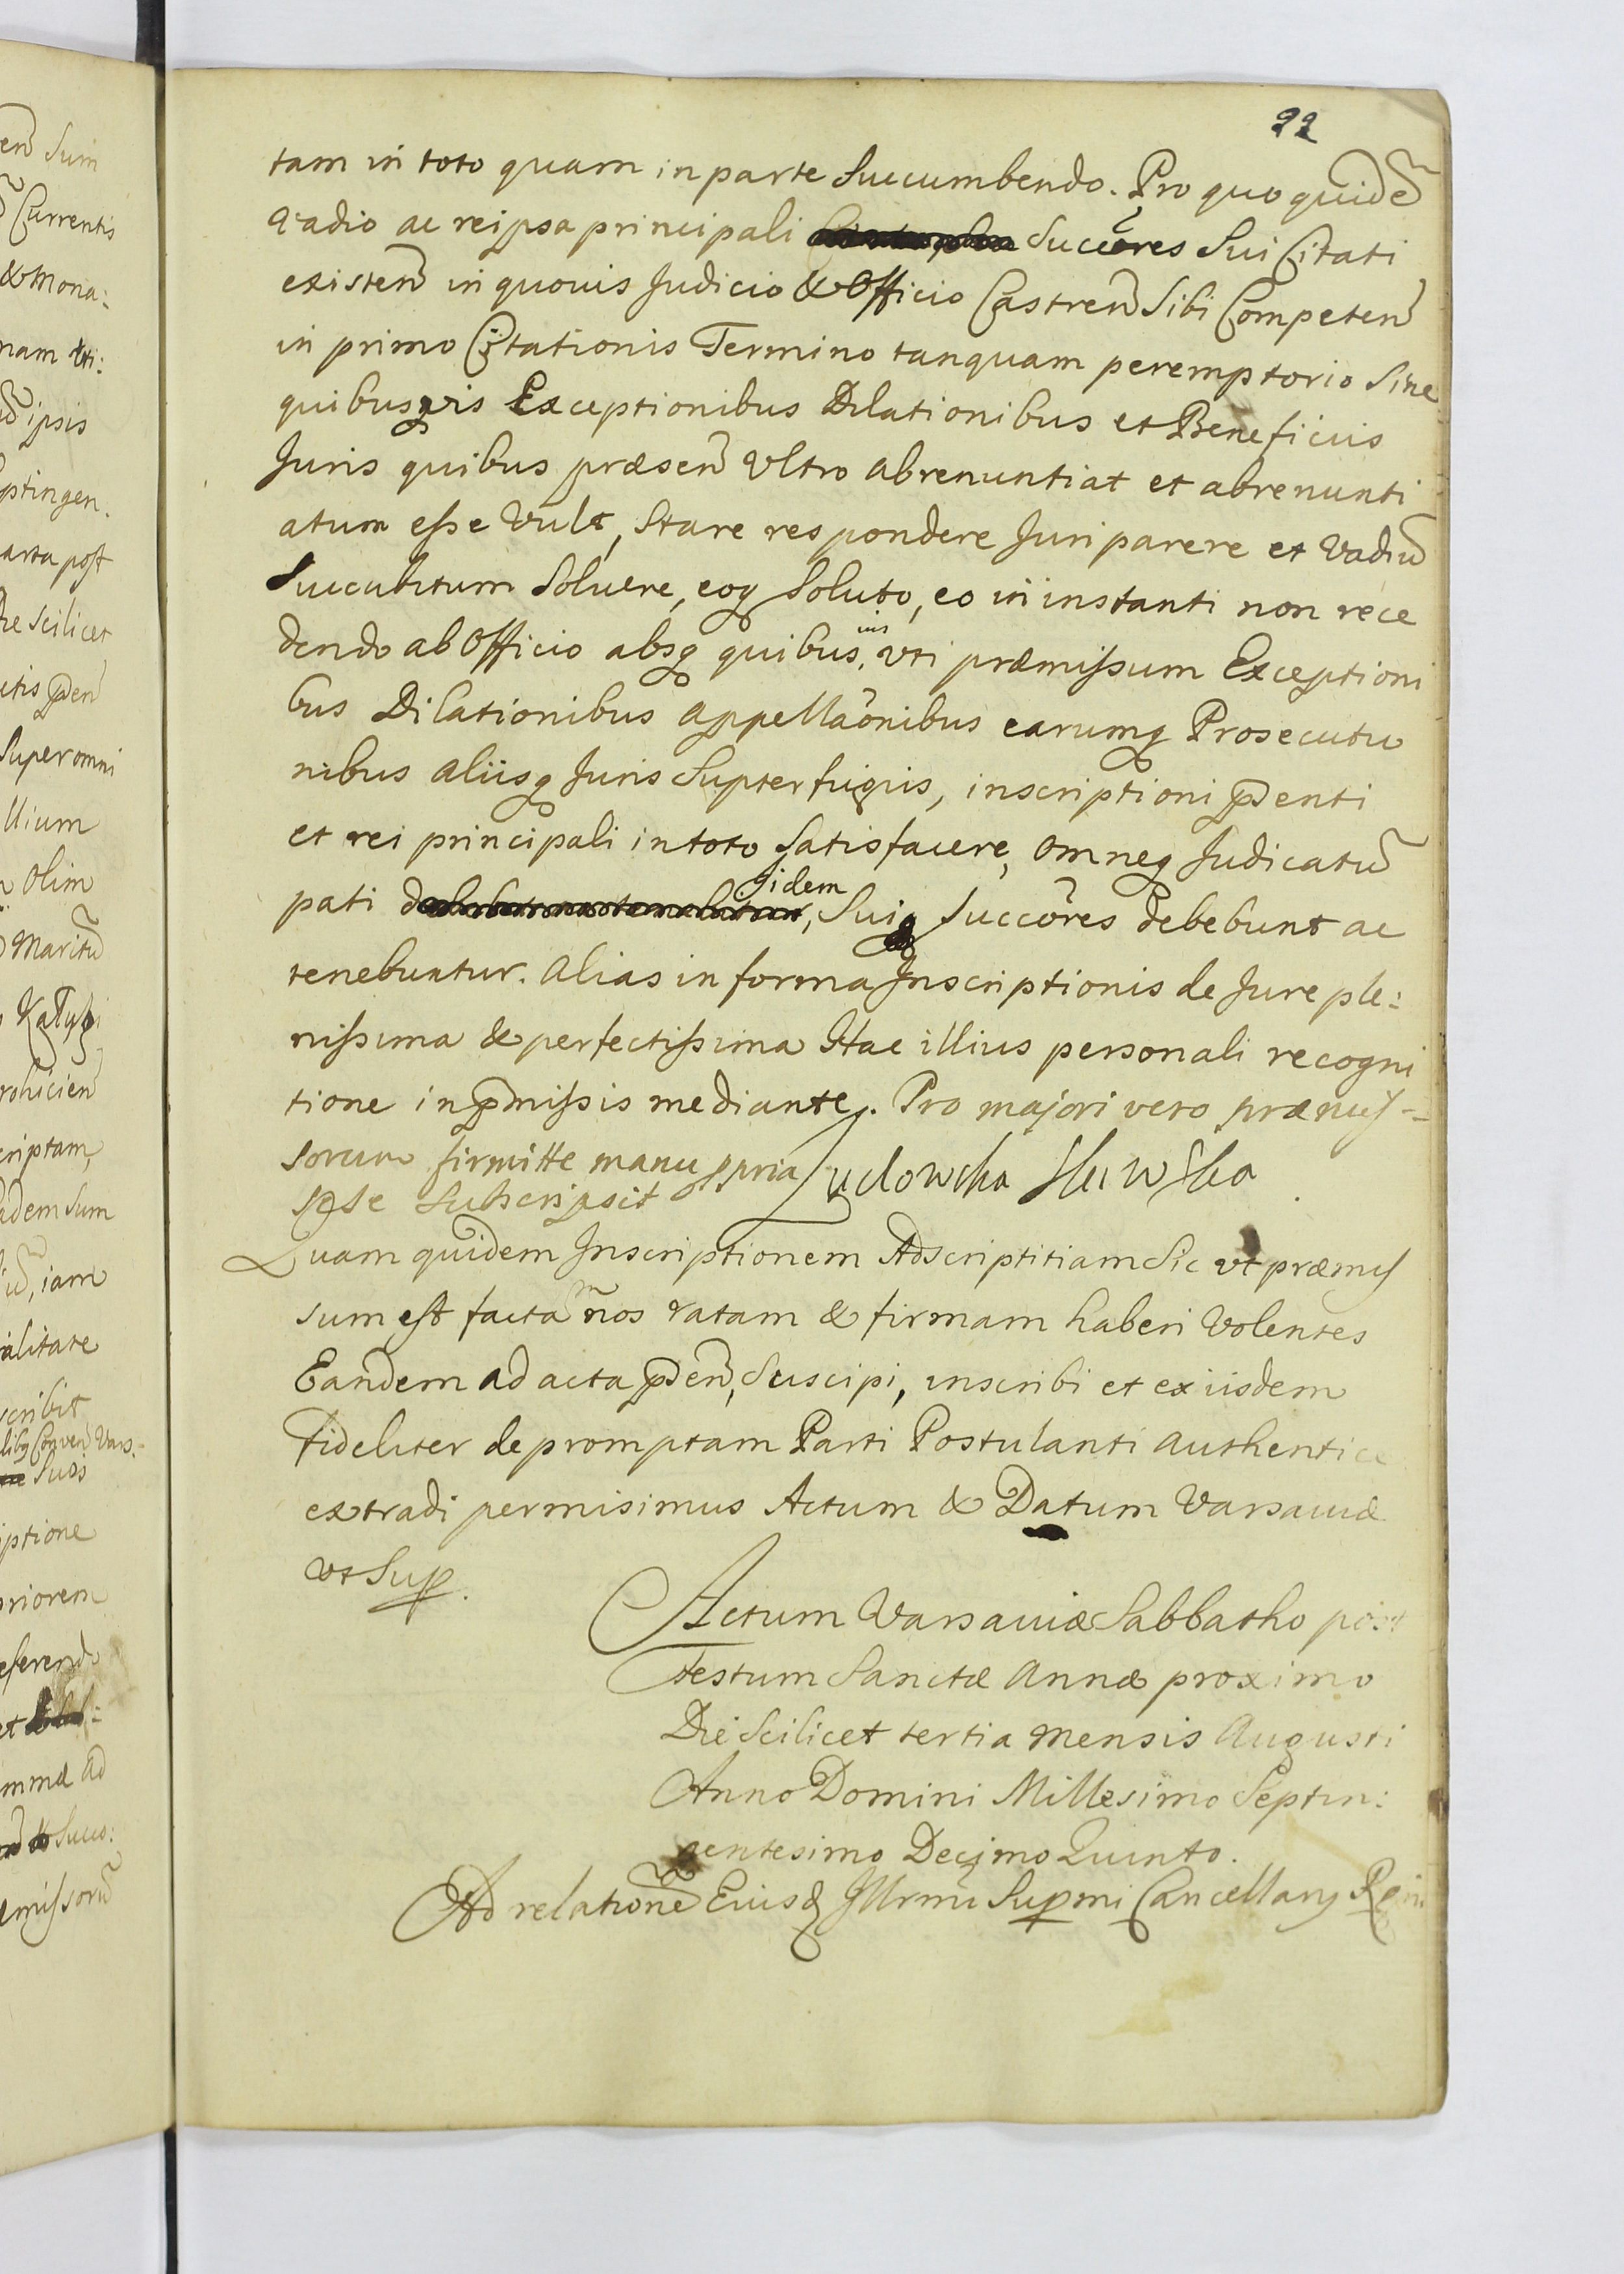 22
tam in toto quam in parte Succumbendo. Pro quo quidē
vadio ac rei ipsa principali Succōres Sui Citati
existeñ in quouis Judicio & Officio Castreñ Sibi Competeñ
in primo Citationis Termino tanquam peremptorio Sine
quibusvis Exceptionibus Dilationibus et Beneficiis
Juris quibus præseñ Vltro abrenuntiat et abrenunti
atum eſse Vult, Stare respondere Juri parere et Vadiū
Succubitum Soluere, eoq Soluto, eo in instanti non rece
dendo ab Officio absq quibusuis, vti præmiſsum Exceptioni
bus Dilationibus appellaōnibus earumq Prosecutio
nibus aliisq Juris Supterfugiis, inscriptioni pñdenti
et rei principali in toto Satisfacere, omneq Judicatū
pati iidem, Suiq Succōres debebunt ac
tenebuntur. Alias in forma Inscriptionis de Jure ple:
niſsima & perfectiſsima Hac illius personali recogni
tione in pmiſsis mediante. Pro majori vero præmiſ-
sorum firmitte manu ppria Ludowika Słuwska
Se Subscripsit
Quam quidem Inscriptionem Adscriptitiam Sic vt præmiſ
sum est factam nos ratam & firmam haberi Volentes
Eandem ad acta pñdeñ, Suscipi, inscribi et ex iisdem
Fideliter depromptam Parti Postulanti authentice
extradi permisimus Actum & Datum Varsauiæ
vt Sup.
Actum Varsauiæ Sabbatho post
Festum Sanctæ Annæ proximo
Die Scilicet tertia Mensis Augusti
Anno Domini Millesimo Septin:
gentesimo Decimo Quinto.
Ad relationē Eiusd Illrmi Supmi Cancellarij Regni
Currentis
& Mona:
ipsis
Scilicet
Super omni
Olim
Maritū
iam
iptione
priorem